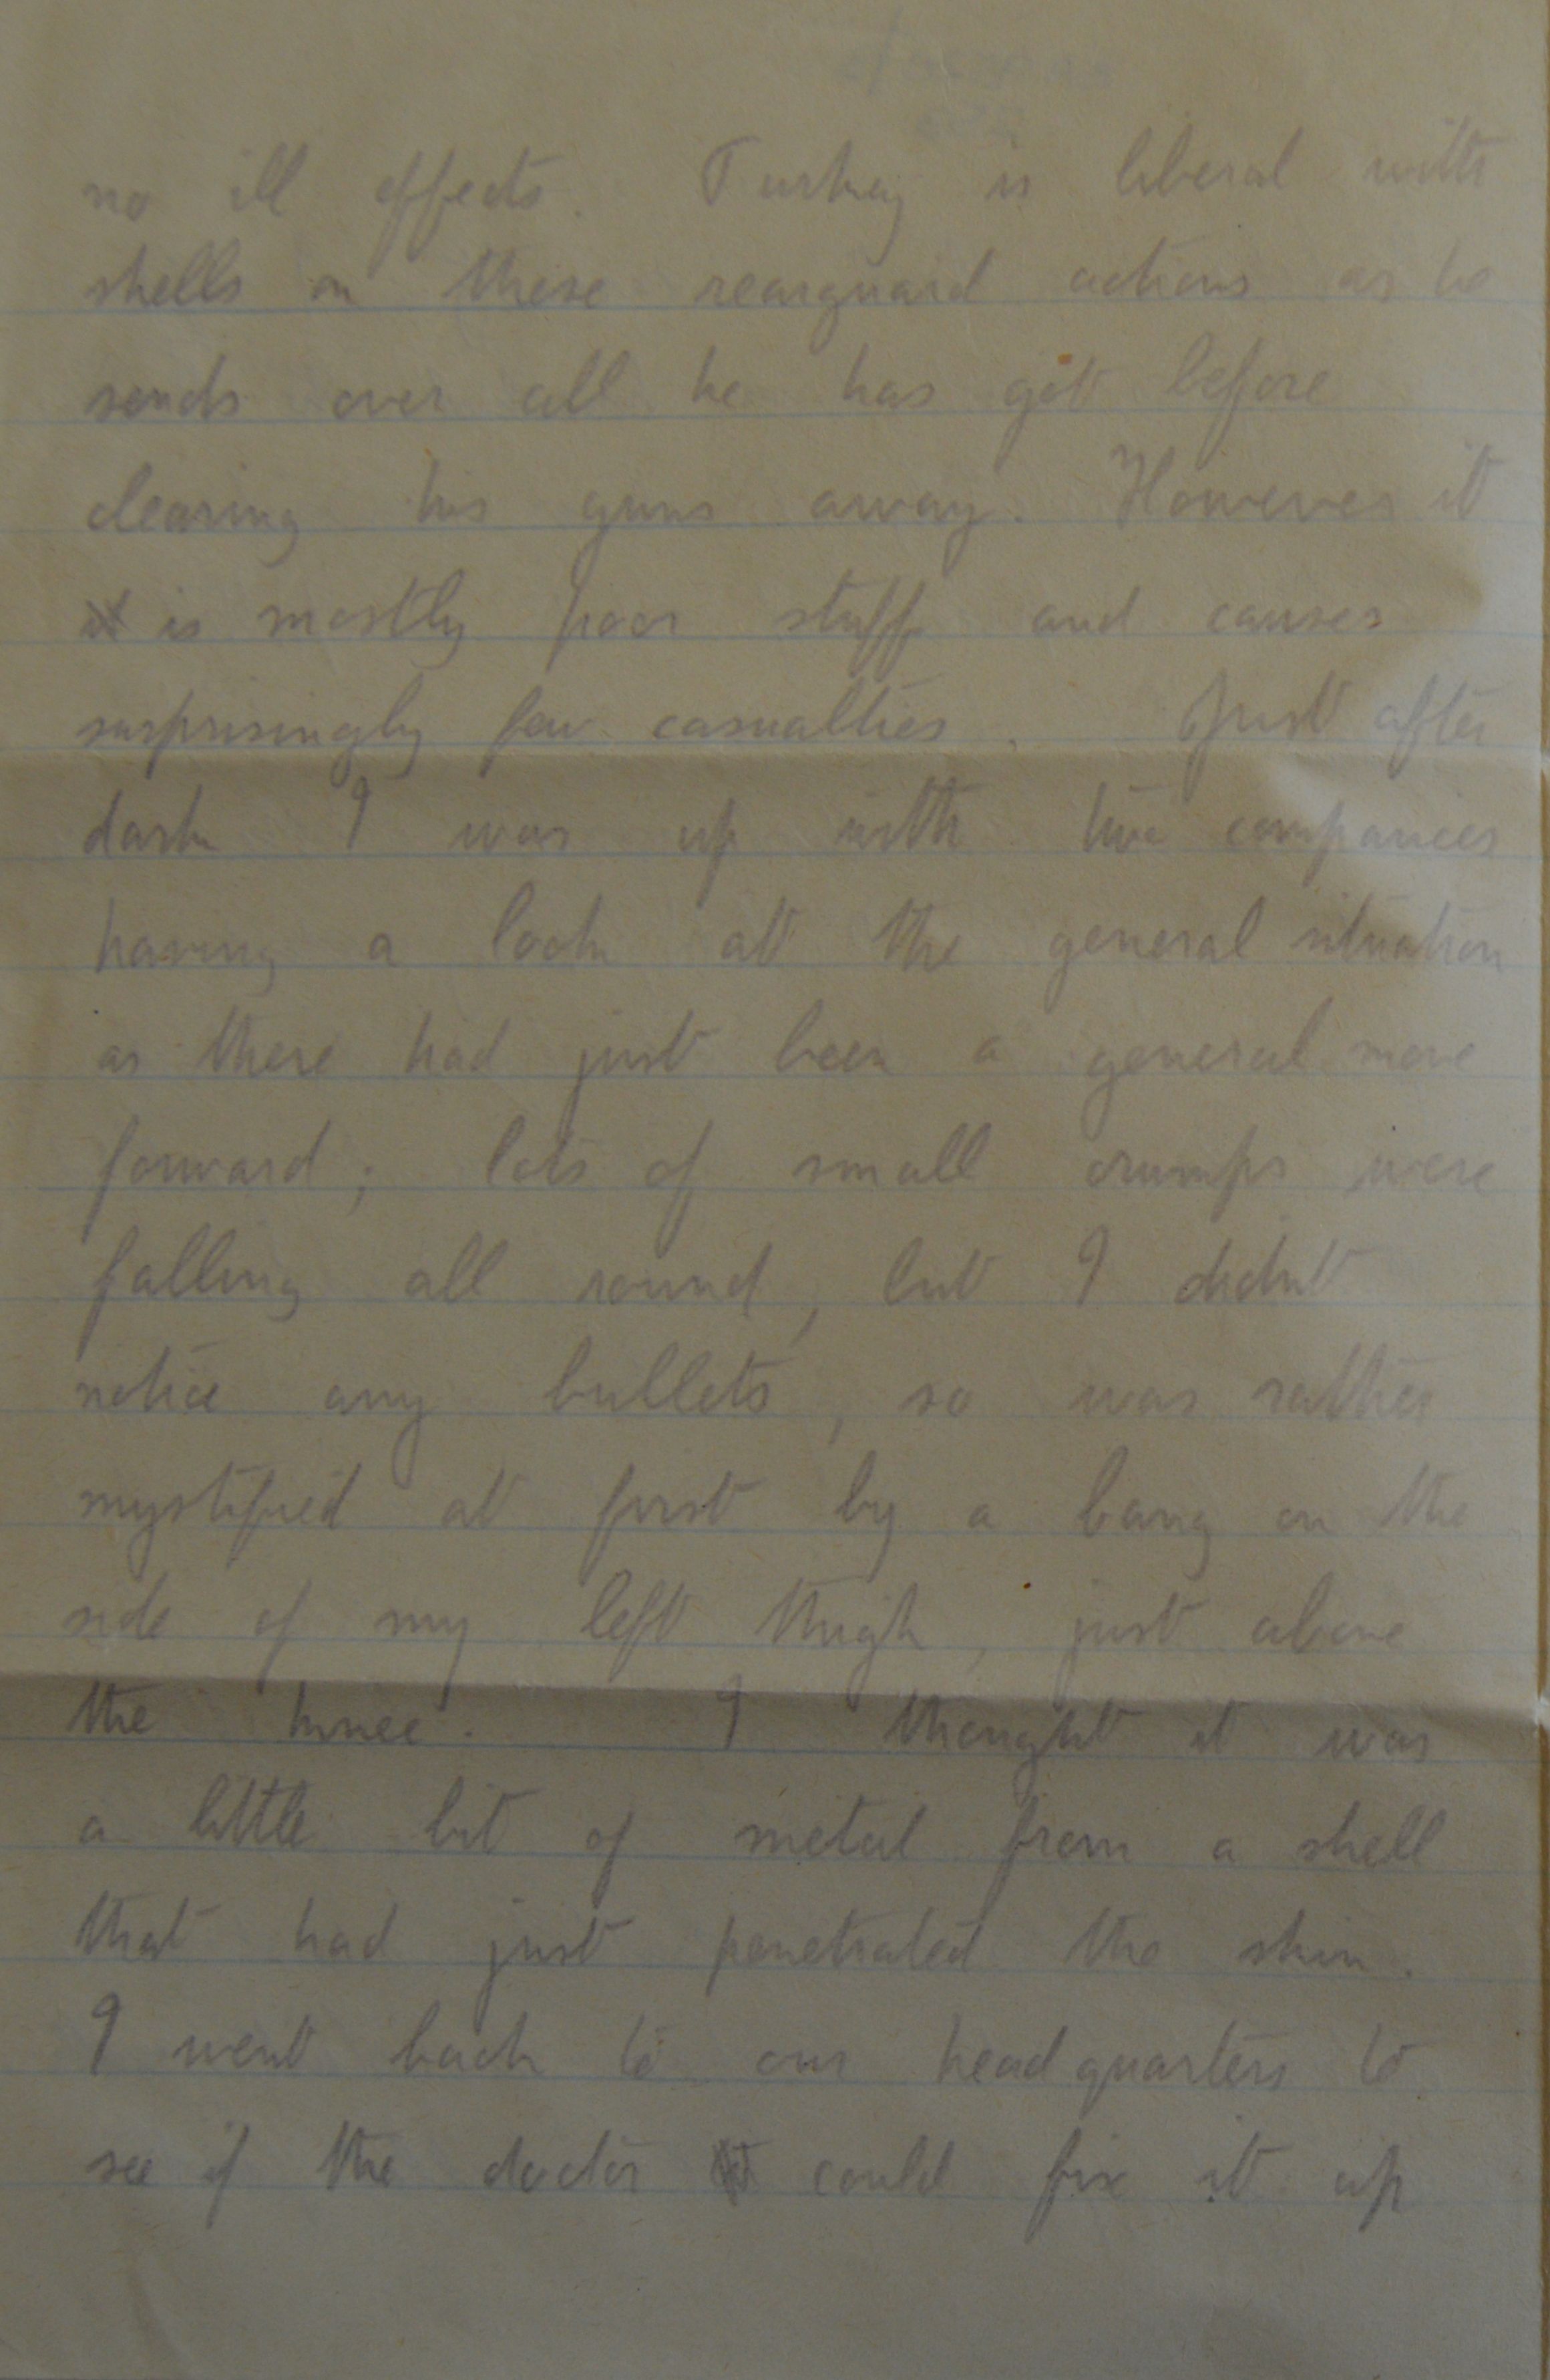 no ill effects. Turkey is liberal with
shells on these rearguard actions as he
sends over all he has got before
clearing his guns away. However it
is mostly poor stuff and causes
surprisingly few casualties. Just after
dark I was up with two companies
having a look at the general situation
as there had just been a general move
forward; lots of small crumps were
falling all round, but I didnt
notice any bullets, so was rather
mystified at first by a bang on the
side of my left thigh, just above
the knee. I thought it was
a little bit of metal from a shell
that had just penetrated the skin.
I went back to our headquarters to
see if the doctor could fix it up